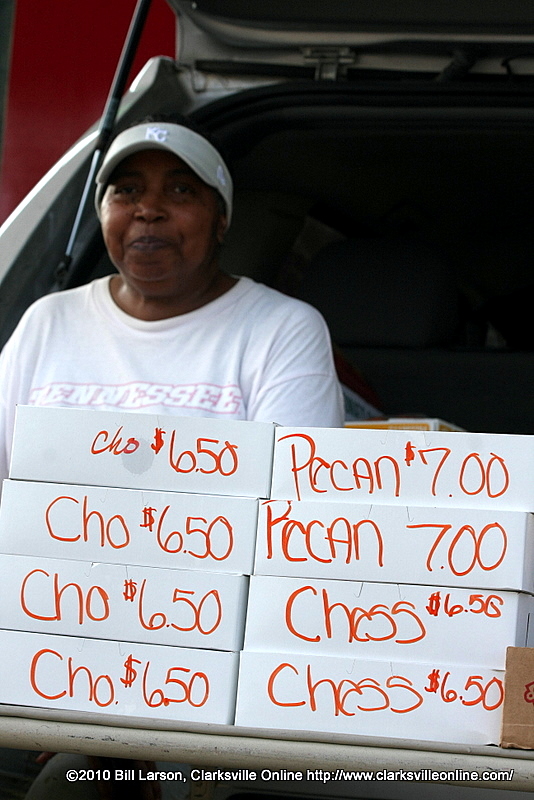 KC
TENNESSEE
Cho $6.50
Pecan $7.00
Cho $6.50
Pecan 7.00
Cho $6.50
Chess $6.50
Cho. $6.50
Chess $6.50
©2010 Bill Larson, Clarksville Online http://www.clarksvilleonline.com/